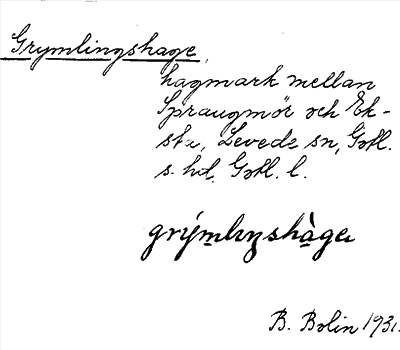 Grymlingshage,
hagmark mellan
Spraugmör och Ek-
sta, Levede sn, Gotl.
s. hd. Gotl. l.
grýml​ıŋshàgeı
B. Bolin 1931.